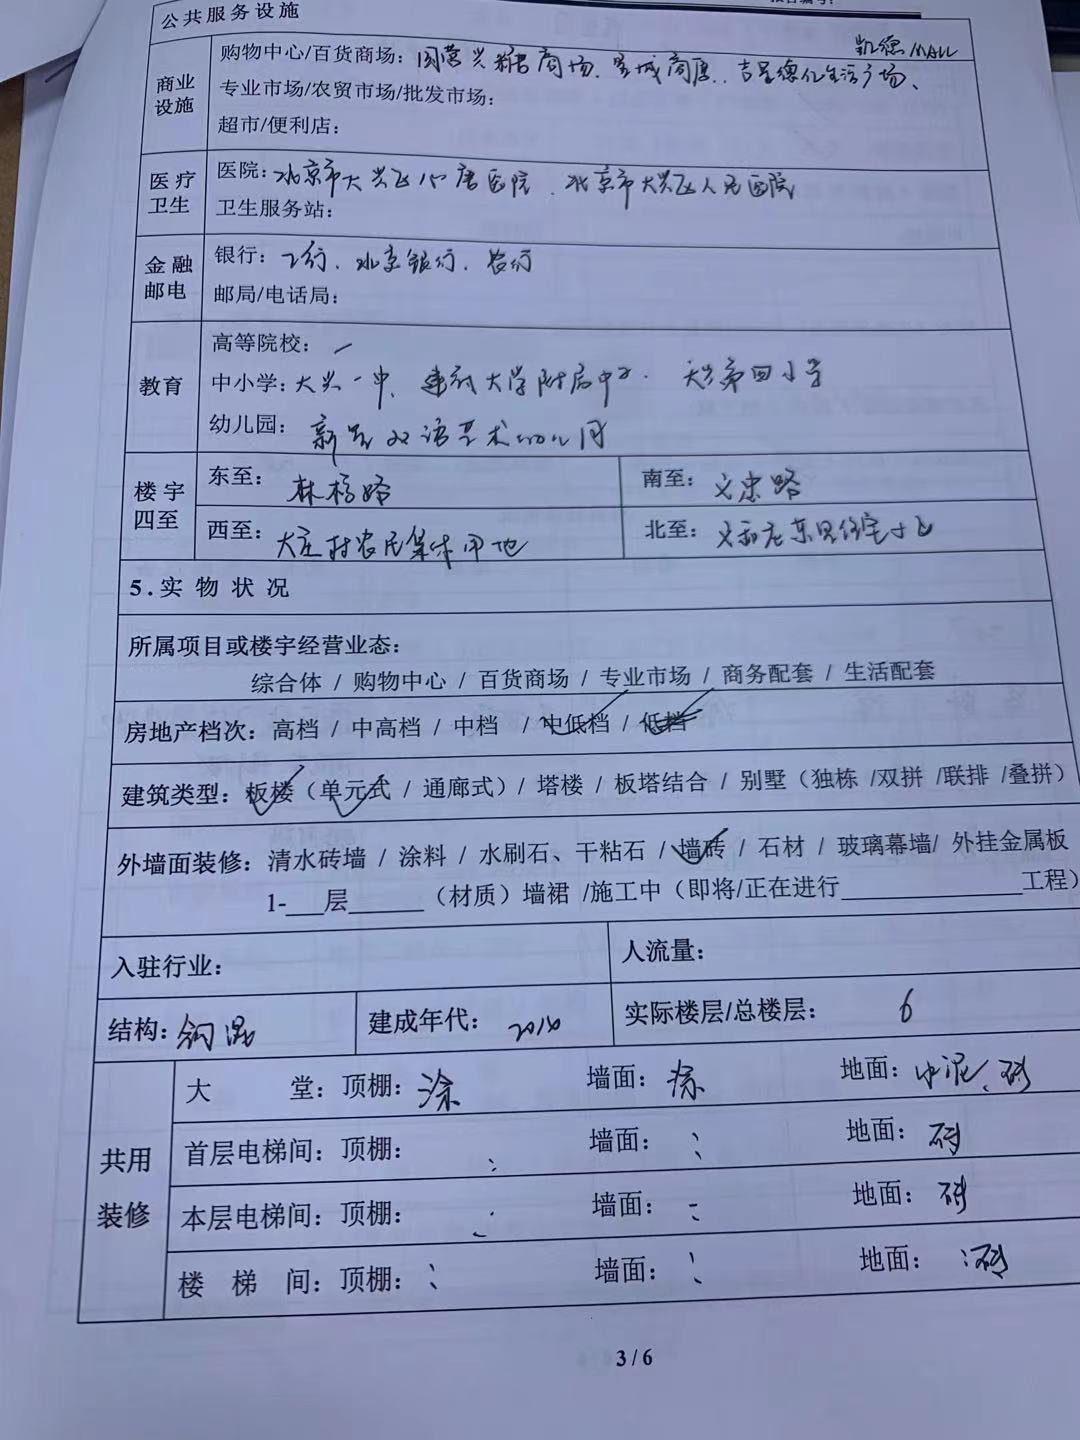 公共服务设施
商业设施
购物中心/百货商场：国营兴糖商场、星城商厦、吉星德亿生活广场、凯德MALL
专业市场/农贸市场/批发市场：
超市/便利店：
医疗卫生
医院：北京市大兴区心康医院、北京市大兴区人民医院
卫生服务站：
金融邮电
银行：工行、北京银行、农行
邮局/电话局：
教育
高等院校： /
中小学：大兴一中、建筑大学附属中学、大兴第四小学
幼儿园：双语艺术幼儿园
楼宇四至
东至：林校路
南至：义忠路
西至：大庄村农民集体用地
北至：义和庄东里住宅小区
5.实物状况
所属项目或楼宇经营业态：
综合体 / 购物中心 / 百货商场 / 专业市场 / 商务配套 / 生活配套
房地产档次：高档 / 中高档 / 中档 / 中低档 / 低档
建筑类型：板楼（单元式 / 通廊式）/ 塔楼 / 板塔结合 / 别墅（独栋 /双拼 /联排 /叠拼）
外墙面装修：清水砖墙 / 涂料 / 水刷石、干粘石 / 墙砖 / 石材 / 玻璃幕墙/ 外挂金属板
1-___层______（材质）墙裙 /施工中（即将/正在进行______________工程）
入驻行业：
人流量：
结构：钢混
建成年代：2010
实际楼层/总楼层： 6
共用装修
大 堂：顶棚：涂 墙面：涂 地面：水泥、砖
首层电梯间：顶棚： 墙面： 地面：砖
本层电梯间：顶棚： 墙面： 地面：砖
楼 梯 间：顶棚： 墙面： 地面：砖
3 / 6